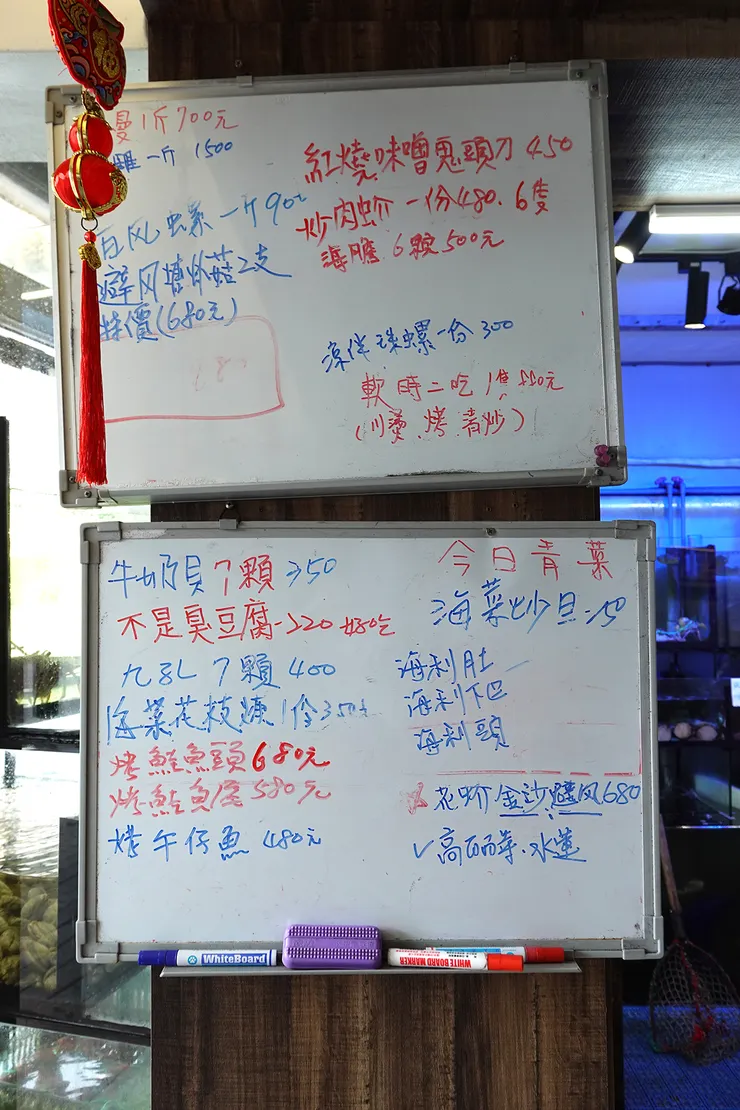 1斤700元
一斤1500
巨风螺 一斤90
避风塘炒菇2支
特價(680元)
紅燒味噌鬼頭刀 450
炒肉蚧 一份480. 6隻
海膽 6顆500元
涼伴珠螺一份 300
軟時二吃 1隻550元
(川燙.烤.清炒)
牛奶貝7顆 350
不是臭豆腐-220 好吃
九孔 7顆 400
海菜花枝煉1份350元
烤鮭魚頭680元
烤鮭魚尾580元
烤午仔魚 480元
今日青菜
海菜炒旦150
海刺肚
海刺下巴
海刺頭
花蚧金沙.避风680
✓高丽菜.水蓮
WhiteBoard
WHITE BOARD MARKER